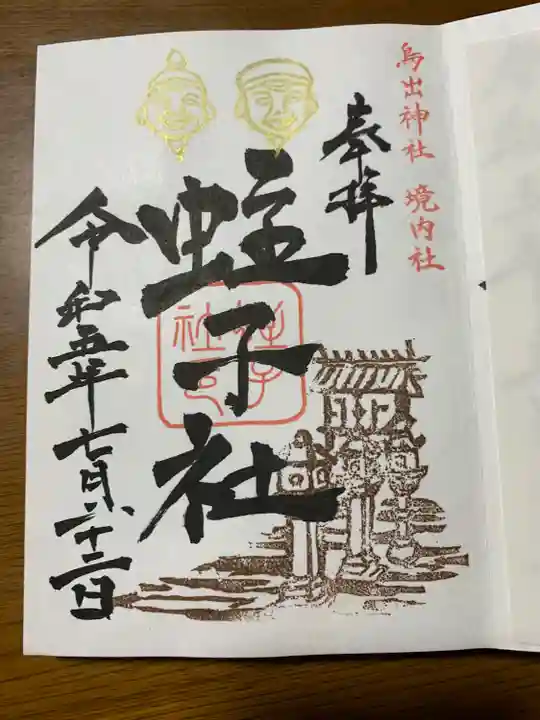 鳥出神社 境内社
奉拝
蛭子社
令和五年七月二十二日